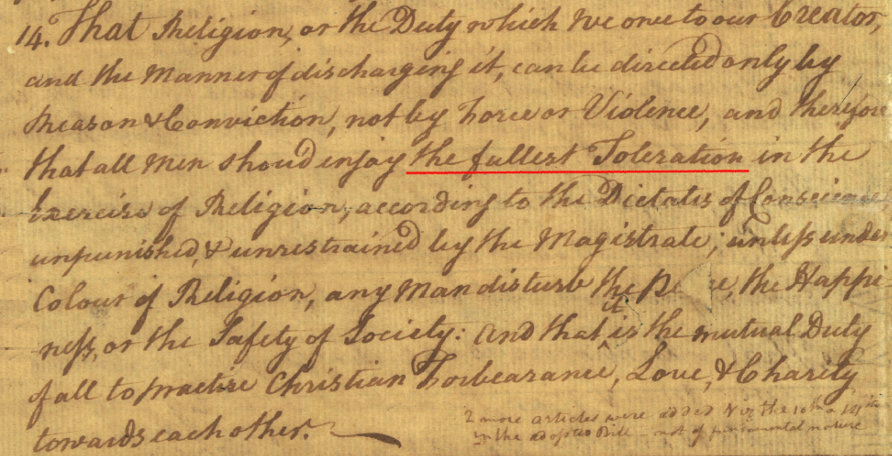 14. That Religion, or the Duty which we owe to our Creator,
and the Manner of discharging it, can be directed only by
Reason & Conviction, not by Force or Violence, and therefore
that all Men should enjoy the fullest Toleration in the
Exercise of Religion, according to the Dictates of Conscience
unpunished, & unrestrained by the Magistrate; unless under
Colour of Religion, any Man disturb the Pe e, the Happi
ness, or the Safety of Society: And that it is the mutual Duty
of all to practise Christian Forbearance, Love, & Charity
towards each other.
2 more articles were added viz the 10th & 14th
in the adopted Bill – not of fundamental nature